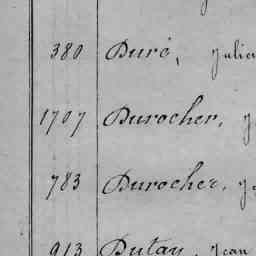 380 Duré, Julien
1707 Durocher, J
783 Durocher, J
913 Dutay, Jean